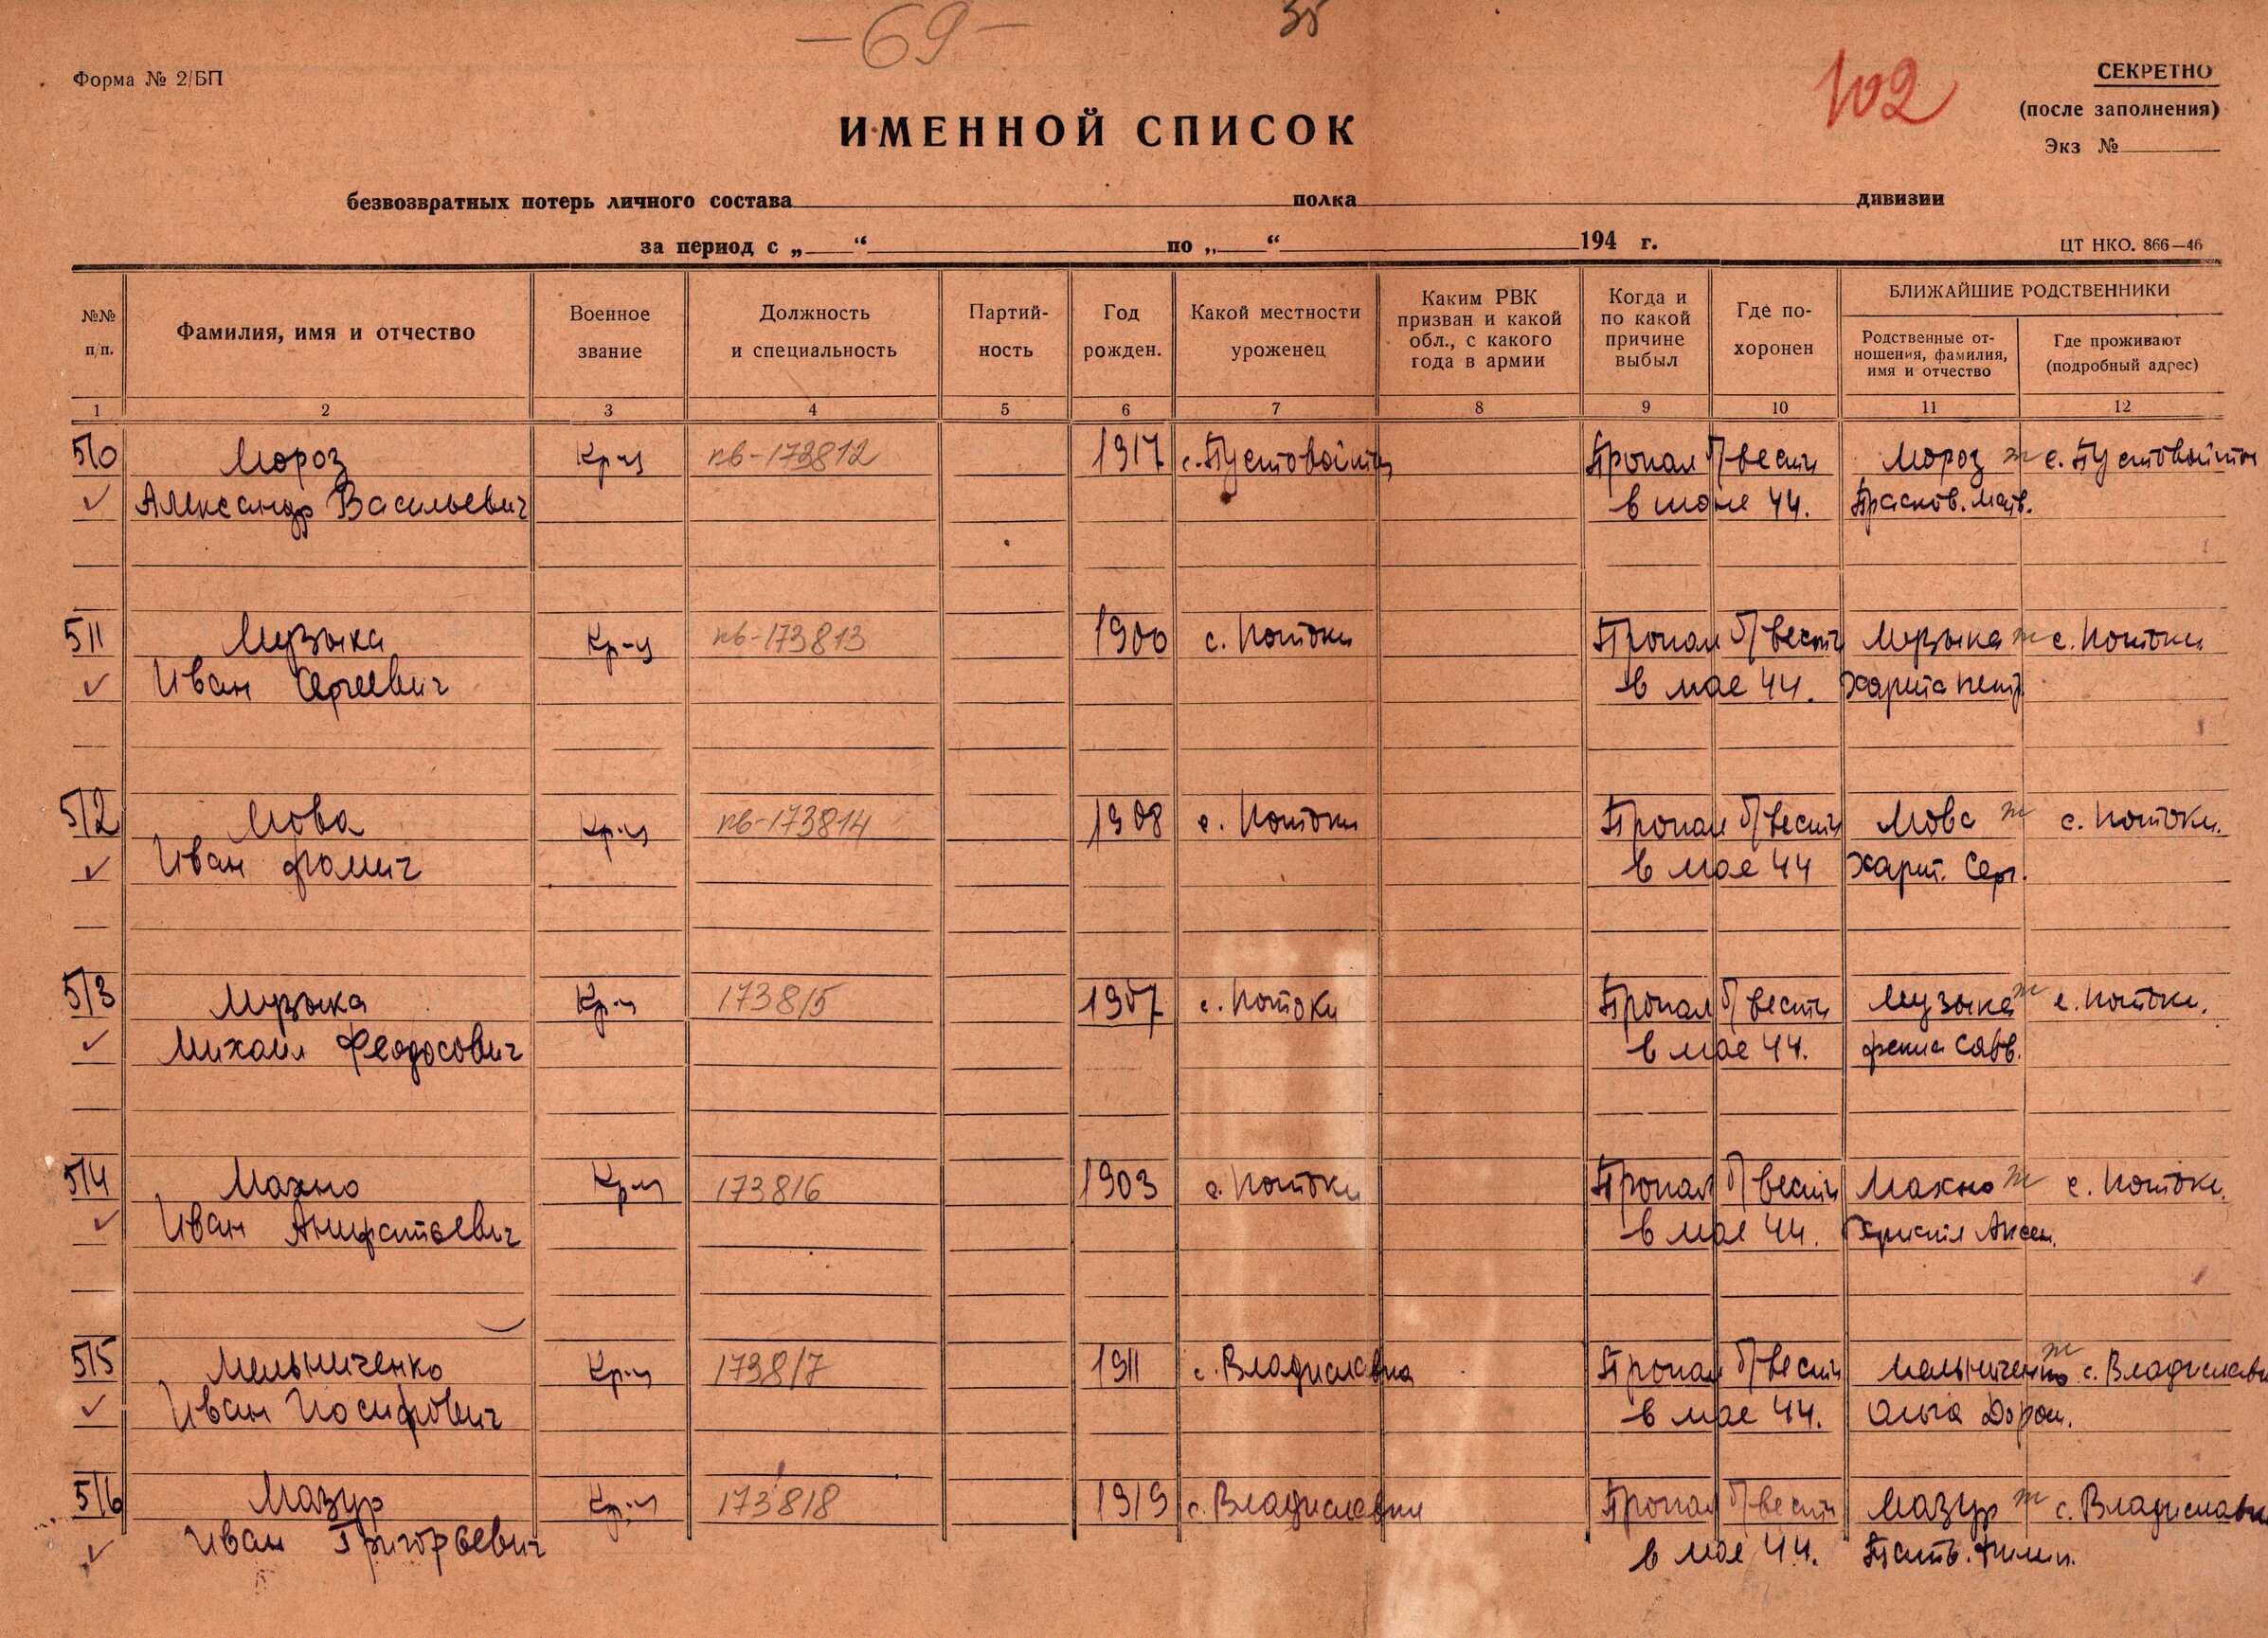 -69-
35
Форма № 2/БП
102
СЕКРЕТНО
(после заполнения)
Экз №
ИМЕННОЙ СПИСОК
безвозвратных потерь личного состава полка дивизии
за период с „ “ по „ “ 194 г.
ЦТ НКО. 866—46
№№ п/п.
Фамилия, имя и отчество
Военное звание
Должность и специальность
Партий-ность
Год рожден.
Какой местности уроженец
Каким РВК призван и какой обл., с какого года в армии
Когда и по какой причине выбыл
Где по-хоронен
БЛИЖАЙШИЕ РОДСТВЕННИКИ
Родственные от-ношения, фамилия, имя и отчество
Где проживают (подробный адрес)
1 2 3 4 5 6 7 8 9 10 11 12
510 Мороз Кр-ц пв-173812 1917 с. Пустовойты Пропал б/вести Мороз ж с. Пустовойты
Александр Васильевич в июне 44. Прасков. Матв.
511 Музыка Кр-ц пв-173813 1900 с. Потоки Пропал б/вести Музыка ж с. Потоки
Иван Сергеевич в мае 44. Харита Петр.
512 Мова Кр-ц пв-173814 1908 с. Потоки Пропал б/вести Мова ж с. Потоки.
Иван Фомич в мае 44 Харит. Серг.
513 Музыка Кр-ц 173815 1907 с. Потоки Пропал б/вести Музыка ж с. Потоки.
Михаил Феодосович в мае 44. Савв.
514 Махно Кр-ц 173816 1903 с. Потоки Пропал б/вести Махно ж с. Потоки.
Иван Анифатьевич в мае 44. Аксен.
515 Мельниченко Кр-ц 173817 1911 с. Владиславка Пропал б/вести Мельниченко ж с. Владиславка
Иван Иосифович в мае 44. Ольга Дороф.
516 Мазур Кр-ц 173818 1919 с. Владиславка Пропал б/вести Мазур ж с. Владиславка
Иван Григорьевич в мае 44. Татья. Филип.